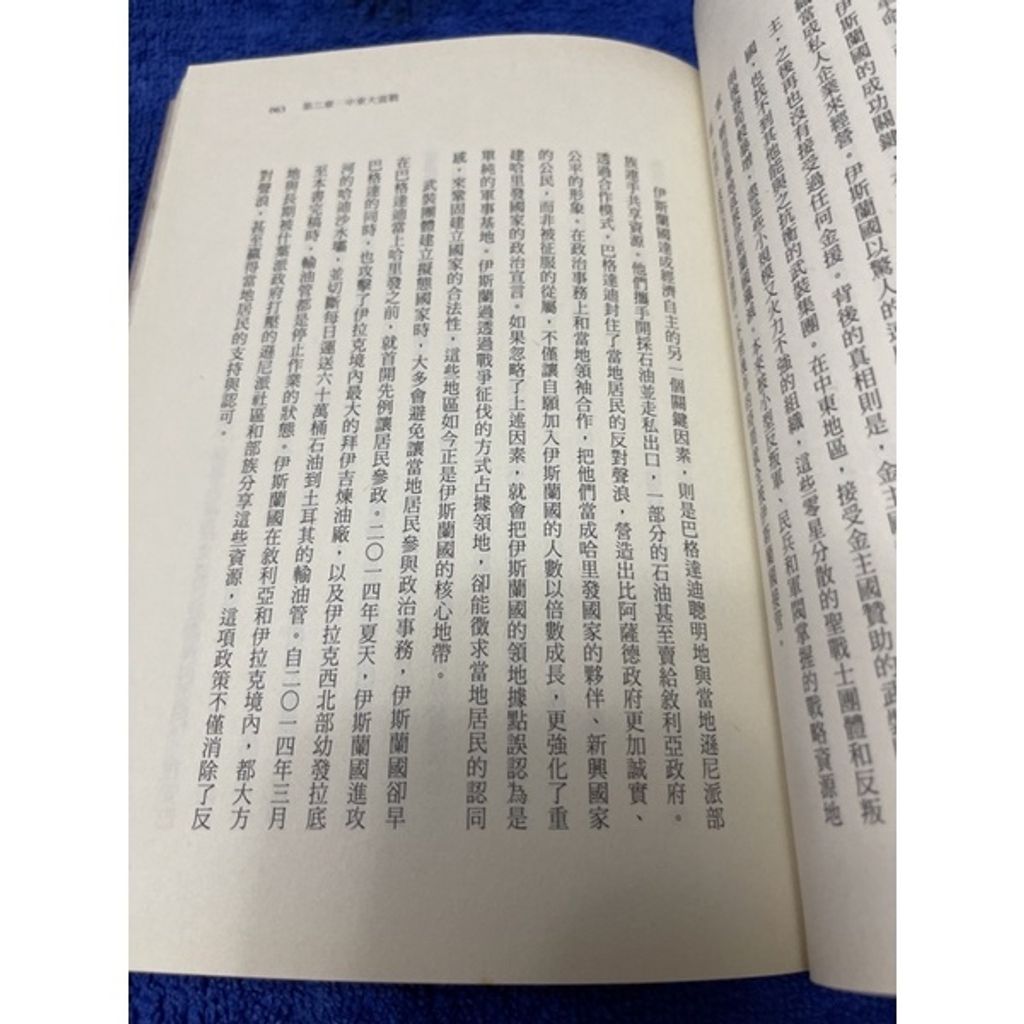 革命，
伊斯蘭國的成功關鍵，
當成私人企業來經營。伊斯蘭國以驚人的
主，之後再也沒有接受過任何金援。背後的真相則是，金主國
國，也找不到其他能與之抗衡的武裝集團。在中東地區，接受金主國贊助的武裝
小規模又火力不強的組織，這些零星分散的聖戰士團體和反叛
本來被小型反叛軍、民兵和軍閥掌握的戰略資源地
063 第二章 中東大震戰
伊斯蘭國達成經濟自主的另一個關鍵因素，則是巴格達迪聰明地與當地遜尼派部
族連手共享資源。他們攜手開採石油並走私出口，一部分的石油甚至賣給敘利亞政府。
透過合作模式，巴格達迪封住了當地居民的反對聲浪，營造出比阿薩德政府更加誠實、
公平的形象。在政治事務上和當地領袖合作，把他們當成哈里發國家的夥伴、新興國家
的公民，而非被征服的從屬，不僅讓自願加入伊斯蘭國的人數以倍數成長，更強化了重
建哈里發國家的政治宣言。如果忽略了上述因素，就會把伊斯蘭國的領地據點誤認為是
單純的軍事基地。伊斯蘭過透過戰爭征伐的方式占據領地，卻能徵求當地居民的認同
感，來鞏固建立國家的合法性，這些地區如今正是伊斯蘭國的核心地帶。
武裝團體建立擬態國家時，大多會避免讓當地居民參與政治事務，伊斯蘭國卻早
在巴格達迪當上哈里發之前，就首開先例讓居民參政。二〇一四年夏天，伊斯蘭國進攻
巴格達的同時，也攻擊了伊拉克境內最大的拜伊吉煉油廠，以及伊拉克西北部幼發拉底
河的哈迪沙水壩，並切斷每日運送六十萬桶石油到土耳其的輸油管。自二〇一四年三月
至本書完稿時，輸油管都是停止作業的狀態。伊斯蘭國在敘利亞和伊拉克境內，都大方
地與長期被什葉派政府打壓的遜尼派社區和部族分享這些資源，這項政策不僅消除了反
對聲浪，甚至贏得當地居民的支持與認可。